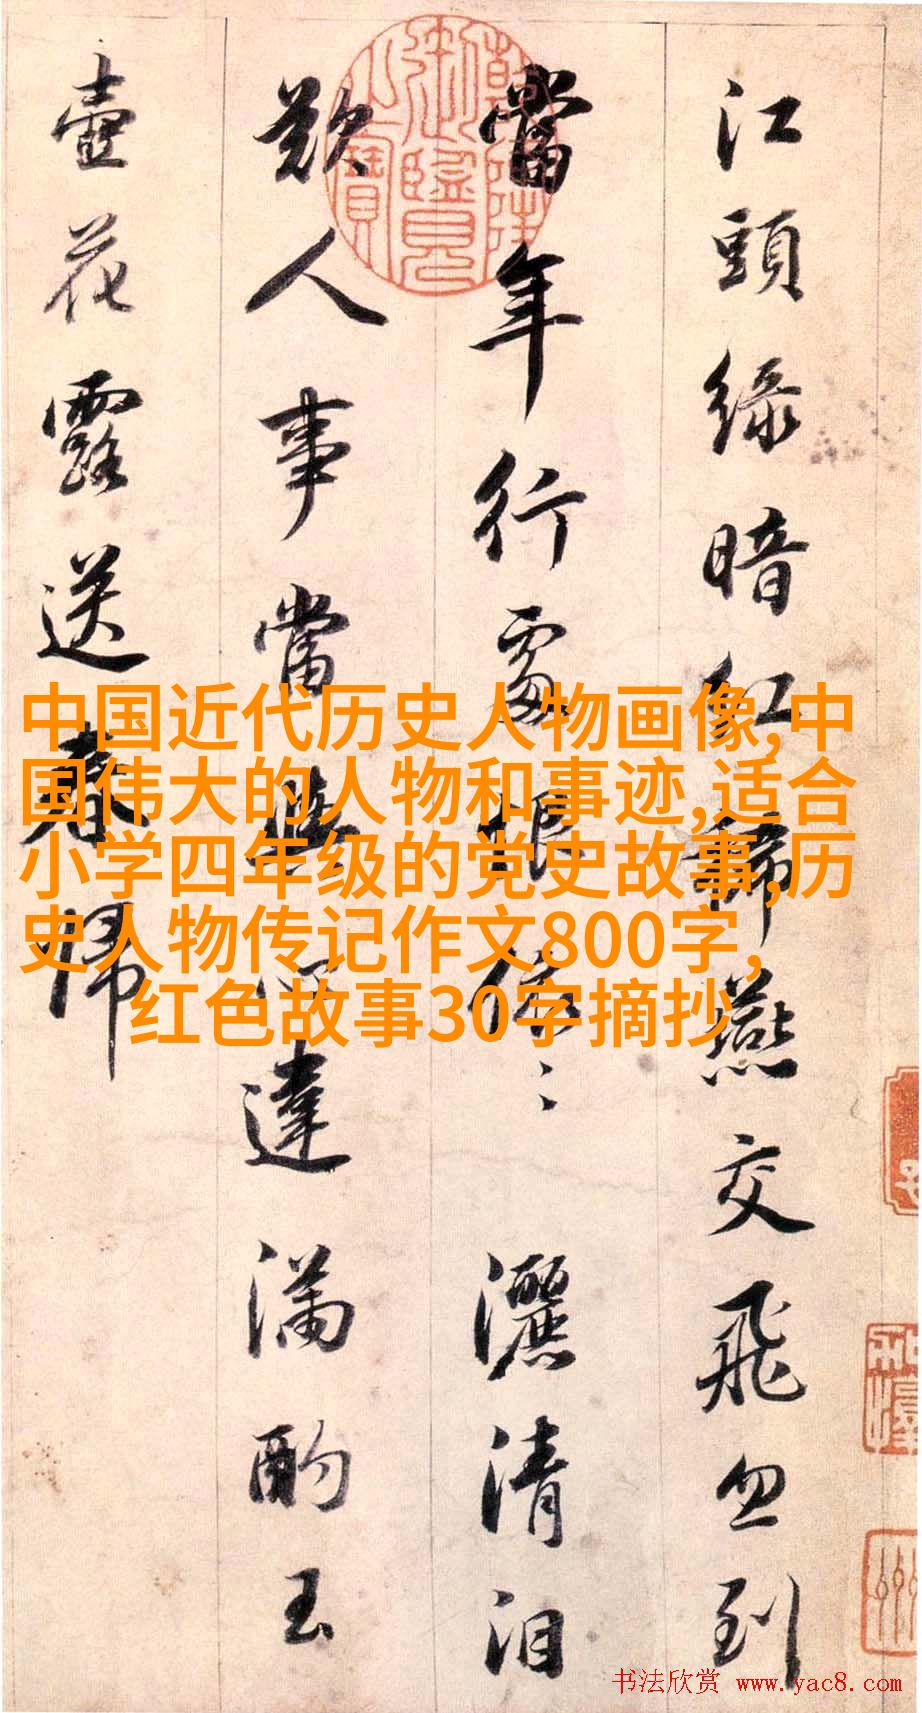 江頭綠暗紅稀燕交飛忽到
當年行處恨依〻灑清泪
歎人事當與心違滿酌玉
壺花露送春歸
乾隆御覽之寶
中国近代历史人物画像,中
国伟大的人物和事迹,适合
小学四年级的党史故事,历
史人物传记作文800字,
红色故事30字摘抄
书法欣赏 www.yac8.com